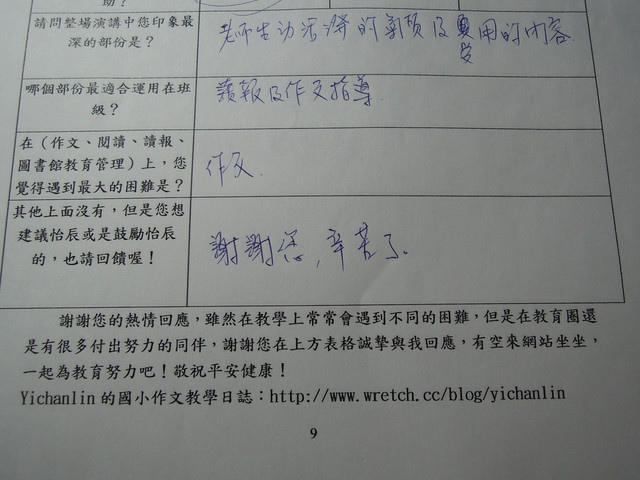 助？
請問整場演講中您印象最
深的部份是？
老師生動活潑的
用的內容
哪個部份最適合運用在班
級？
讀報及作文指導
在（作文、閱讀、讀報、
圖書館教育管理）上，您
覺得遇到最大的困難是？
作文.
其他上面沒有，但是您想
建議怡辰或是鼓勵怡辰
的，也請回饋喔！
謝謝您，辛苦了.
謝謝您的熱情回應，雖然在教學上常常會遇到不同的困難，但是在教育圈還
是有很多付出努力的同伴，謝謝您在上方表格誠摯與我回應，有空來網站坐坐，
一起為教育努力吧！敬祝平安健康！
Yichanlin 的國小作文教學日誌：http://www.wretch.cc/blog/yichanlin
9